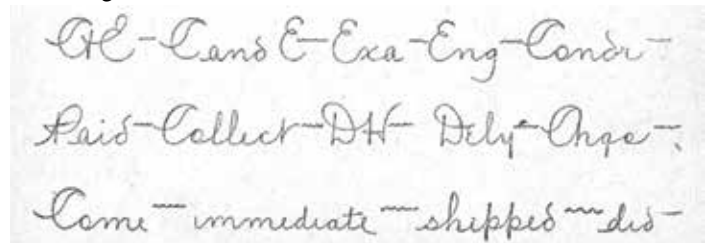 CHE - C and E - Exa - Eng - Condr -
Paid - Collect - DH - Dely - Chgs - .
Come ~ immediate ~ shipped ~ did -